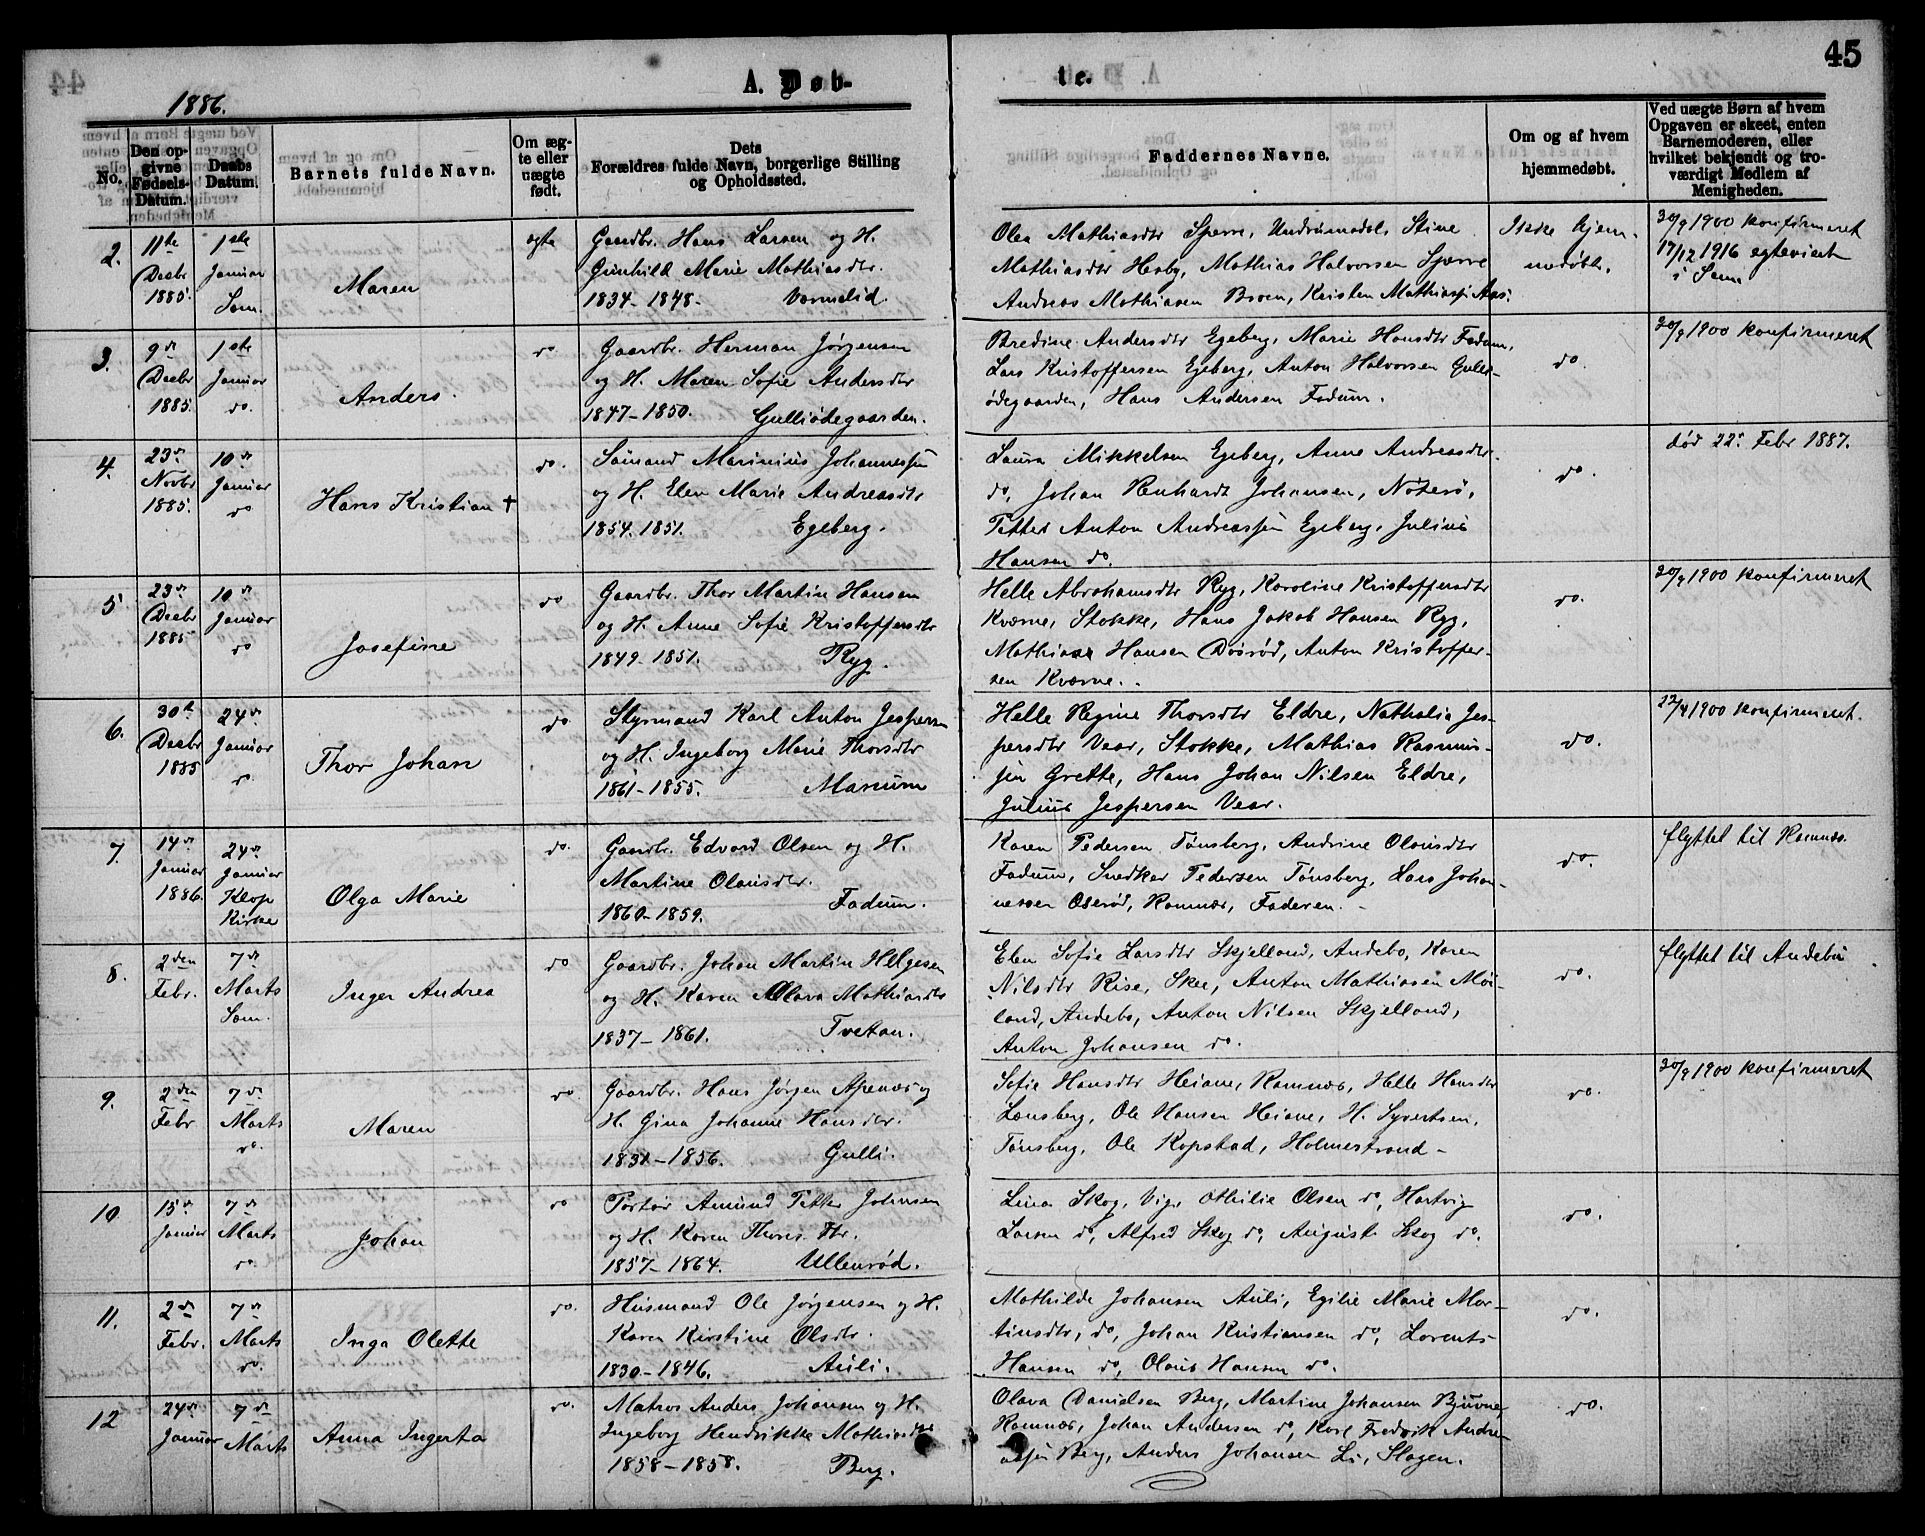 45
A. Døb-
te.
1886.
No.
Den op-
givne
Fødsels-
Datum.
Daabs
Datum.
Barnets fulde Navn.
Om æg-
te eller
uægte
født.
Dets
Forældres fulde Navn, borgerlige Stilling
og Opholdssted.
Faddernes Navne.
Om og af hvem
hjemmedøbt.
Ved uægte Børn af hvem
Opgaven er skeet, enten
Barnemoderen, eller
hvilket bekjendt og tro-
værdigt Medlem af
Menigheden.
2.
11te
Decbr
1885.
1ste
Januar
Sem.
Maren
egte
Gaardbr. Hans Larsen og H.
Gunhild Marie Mathiasdtr.
1834-1848. Vermelid.
Olea Mathiasdtr Sperre, Undrumsdal, Stine
Mathiasdtr Hesby, Mathias Halvorsen Sperre
Andreas Mathiasen Broen, Kristen Mathiass. Aas.
Ikke hjem-
medøbt.
30/9 1900 konfirmeret
17/12 1916 egteviet
i Sem
3.
9de
Decbr
1885.
1ste
Januar
do.
Anders.
do
Gaardbr. Herman Jørgensen
og H. Maren Sofie Andersdtr
1847-1850. Gulliødegaarden.
Bredine Andersdtr Egeberg, Marie Hansdtr Fadum,
Lars Kristoffersen Egeberg, Anton Halvorsen Gulli-
ødegaarden, Hans Andersen Fadum.
do.
30/9 1900 konfirmeret
4.
23de
Novbr
1885.
10de
Januar
do
Hans Kristian †
do.
Sømand Marinius Johannessen
og H. Elen Marie Andreasdtr
1854. 1851. Egeberg.
Laura Mikkelsen Egeberg, Anne Andreasdtr.
do, Johan Renhardt Johansen, Nøterø,
Petter Anton Andreassen Egeberg, Julius
Hansen do.
do.
død 22. Febr 1887.
5
23de
Decbr
1885
10de
Januar
do
Josefine
do
Gaardbr. Thor Martin Hansen
og H. Anne Sofie Kristoffersdtr
1849-1851. Ryg.
Helle Abrahamsdtr Ryg, Karoline Kristoffersdtr
Kværne, Stokke, Hans Jakob Hansen Ryg,
Mathias Hansen Døsrød, Anton Kristoffer-
sen Kværne.
do.
30/9 1900 konfirmeret
6.
30te
Decbr
1885
24de
Januar
do.
Thor Johan
do
Styrmand Karl Anton Jespersen
og H. Ingeborg Marie Thorsdtr
1861-1855. Marum
Helle Regine Thorsdtr Eldre, Nathalia Jes-
persdtr Vear, Stokke, Mathias Rasmus-
sen Grette, Hans Johan Nilsen Eldre,
Julius Jespersen Vear.
do.
22/4 1900 konfirmeret.
7.
14de
Januar
1886.
24de
Januar
Klop
Kirke
Olga Marie
do.
Gaardbr. Edvard Olsen og H.
Martine Olausdtr.
1860-1859. Fadum.
Karen Pedersen Tønsberg, Andrine Olausdtr
Fadum, Snedker Pedersen Tønsberg, Lars Johan-
nessen Oserød, Ramnæs, Faderen.
do.
flyttet til Ramnæs.
8.
2den
Febr.
7de
Marts
Sem.
Inger Andrea
do
Gaardbr. Johan Martin Helgesen
og H. Karen Olava Mathiasdtr
1837-1861. Tvetan.
Elen Sofie Larsdtr Skjelland, Andebo, Karen
Nilsdtr Rise, Skee, Anton Mathiasen Møi-
land, Andebo, Anton Nilsen Skjelland,
Anton Johansen do.
do.
flyttet til Andebu
9.
2den
Febr.
7de
Marts
do.
Maren
do.
Gaardbr. Hans Jørgen Apenæs og
H. Gina Johanne Hansdtr.
1831-1856. Gulli.
Sofie Hansdtr Heiane, Ramnæs, Helle Hansdtr
Lensberg, Ole Hansen Heiane, H. Syvertsen,
Tønsberg, Ole Kopstad, Holmestrand-
do.
30/9 1900 konfirmeret
10
15de
Januar
7de
Marts
do.
Johan
do
Amund Petter Johnsen
og H. Karen
1857-1864. Ullenrød.
Lina Skog, Vige, Othilie Olsen do, Hartvig
Larsen do, Alfred Skog do, August Skog do.
do.
11.
2de
Febr.
7de
Marts
do.
Inga Olette
do.
Husmand Ole Jørgensen og H.
Karen Kirstine Olsdtr.
1830-1846. Auli.
Mathilde Johansen Auli, Egilie Marie Mar-
tinsdtr, do, Johan Kristiansen do, Lorents
Hansen do, Olaus Hansen do.
do.
12
24de
Januar
7de
Marts
Anna Ingerta
do.
Matros Anders Johansen og H.
Ingeborg Hendrikke Mathiasdtr
1858-1858. Berg.
Olava Danielsen Berg, Martine Johansen Bjuvne,
Ramnæs, Johan Andersen do, Karl Fredrik Andre-
assen Berg, Anders Johansen Li, Slagen.
do.